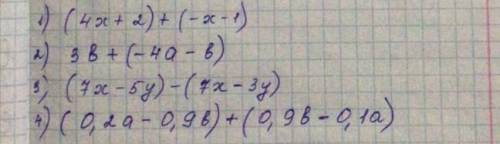 1) (4x+2)+(-x-1)
2) 3в+(-4a-в)
3) (7x-5y)-(7x-3y)
4) (0,2a-0,9в)+(0,9в-0,1a)